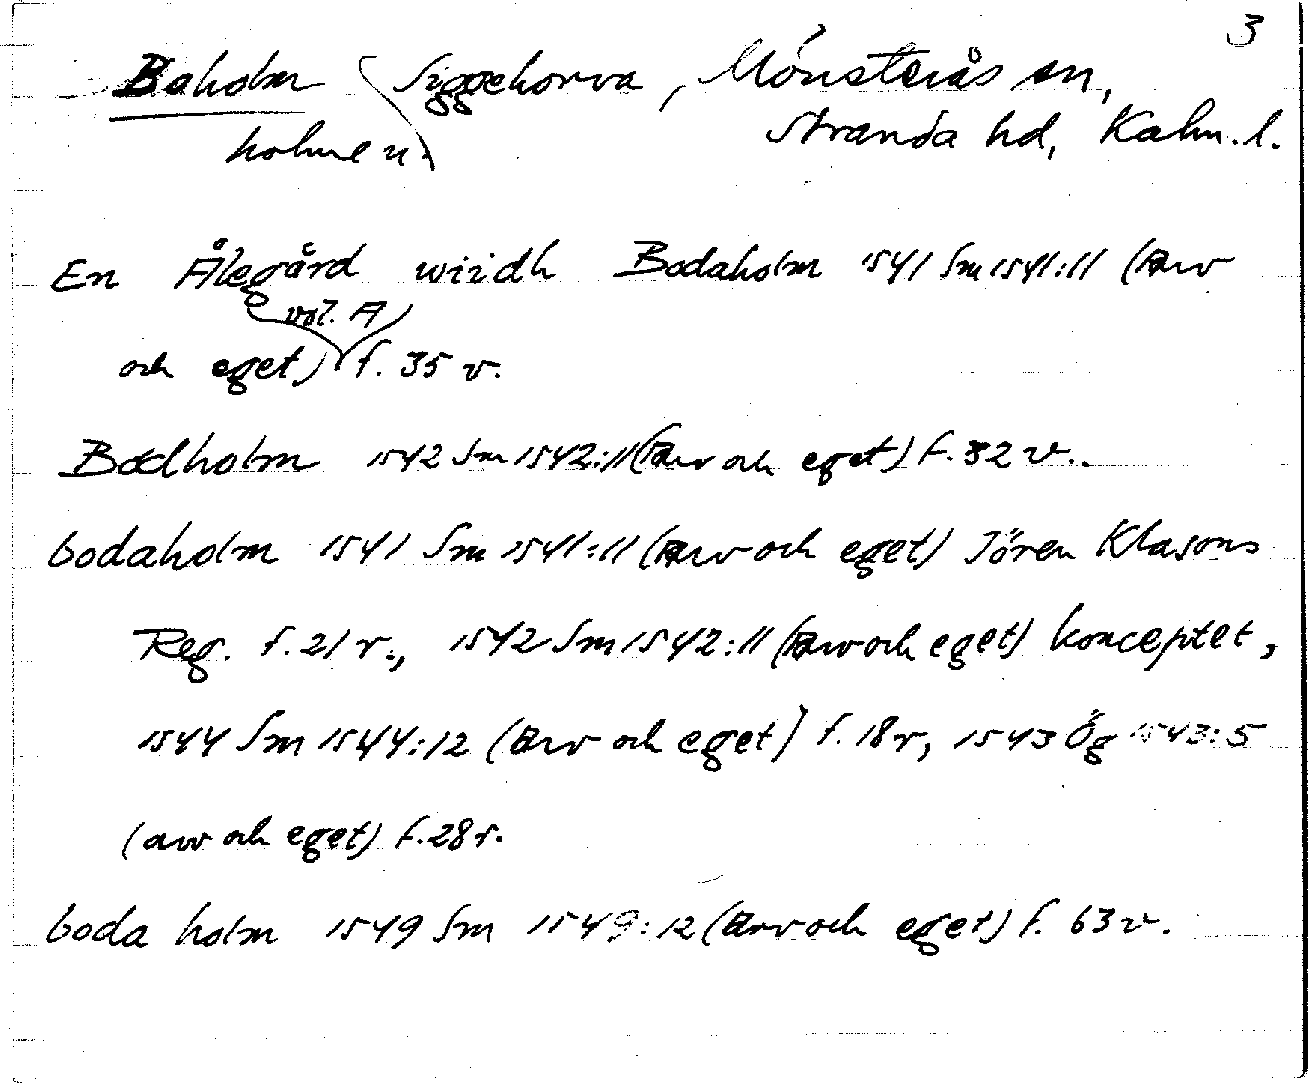 3
Boholm Siggehorva, Mönsterås sn,
holme n. Stranda hd, Kalm. l.
En Ålegård wiidh Bodaholm 1541 Sm 1541:11 (Arv
vol. A
och eget) f. 35 v.
Bodholm 1542 Sm 1542:11 (Arv och eget) f. 32 v.
bodaholm 1541 Sm 1541:11 (Arv och eget) Jören Klasons
Reg. f. 21 r., 1542 Sm 1542:11 (Arv och eget) konceptet,
1544 Sm 1544:12 (Arv och eget) f. 18 r, 1543 Ög 1543:5
(arv och eget) f. 28 r.
boda holm 1549 Sm 1549:12 (Arv och eget) f. 63 v.